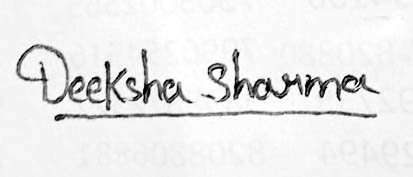 Deeksha Sharma